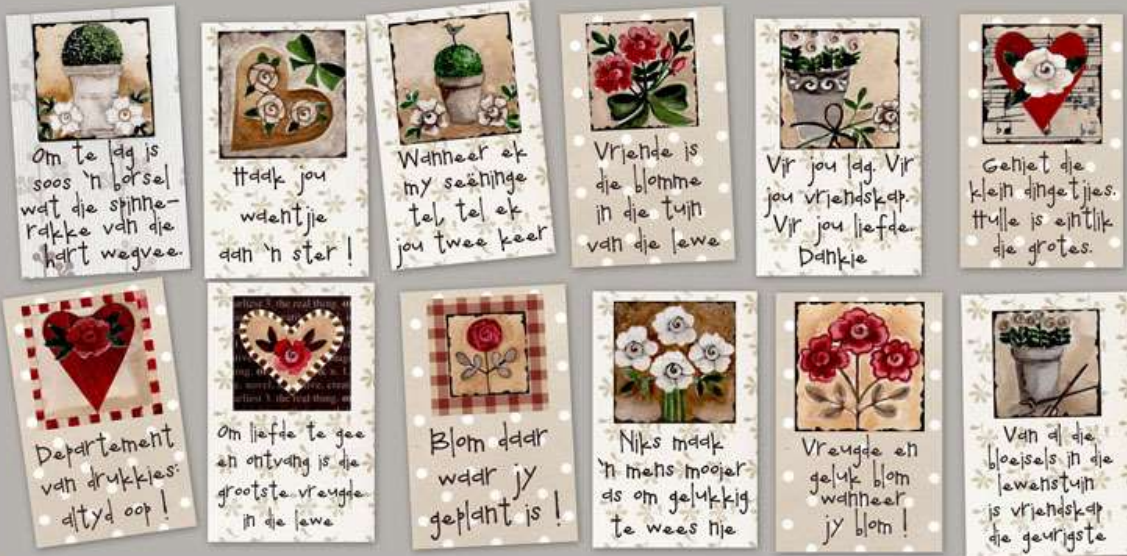 Om te lag is
soos 'n borsel
wat die spinne-
rakke van die
hart wegvee.
Haak jou
waentjie
aan 'n ster!
Wanneer ek
my seëninge
tel, tel ek
jou twee keer
Vriende is
die blomme
in die tuin
van die lewe
Vir jou lag. Vir
jou vriendskap.
Vir jou liefde.
Dankie
Geniet die
klein dingetjies.
Hulle is eintlik
die grotes.
Departement
van drukkies:
altyd oop!
the real thing.
novel.
the real thing.
Om liefde te gee
en ontvang is die
grootste vreugde
in die lewe
Blom daar
waar jy
geplant is!
Niks maak
'n mens mooier
as om gelukkig
te wees nie
Vreugde en
geluk blom
wanneer
jy blom!
Van al die
bloeisels in die
lewenstuin
is vriendskap
die geurigste